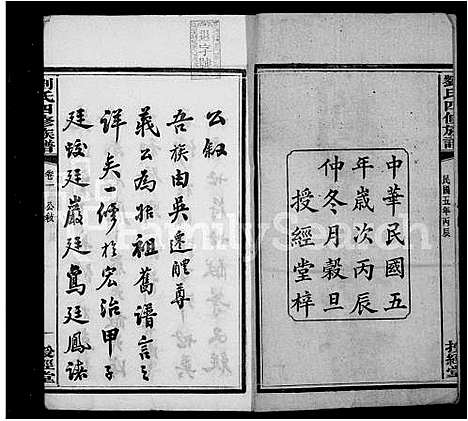 劉氏四修族譜
民國五年丙辰
授經堂
中華民國五
年歲次丙辰
仲冬月穀旦
授經堂梓
公敘
吾族由吳遷醴尊
義公為始祖舊譜言之
詳矣一修於宏治甲子
廷蛟廷巖廷鸞廷鳳諸
劉氏四修族譜
卷一 公敘
授經堂
FamilySearch